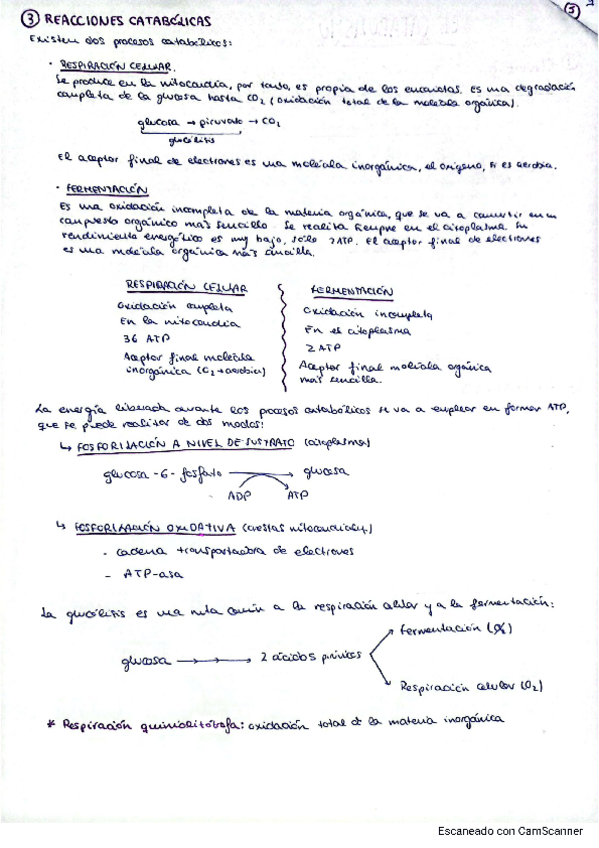 ③ REACCIONES CATABÓLICAS
5
Existen dos procesos catabólicos:
· RESPIRACIÓN CELULAR.
Se produce en la mitocondria, por tanto, es propia de los eucariotas. Es una degradación
completa de la glucosa hasta CO₂ (oxidación total de la molécula orgánica).
glucosa → piruvato → CO₂
glucólisis
El aceptor final de electrones es una molécula inorgánica, el oxígeno, si es aerobia.
· FERMENTACIÓN
Es una oxidación incompleta de la materia orgánica, que se va a convertir en un
compuesto orgánico más sencillo. Se realiza siempre en el citoplasma. Su
rendimiento energético es muy bajo, sólo 2ATP. El aceptor final de electrones
es una molécula orgánica más sencilla.
RESPIRACIÓN CELULAR
FERMENTACIÓN
Oxidación completa
Oxidación incompleta
En la mitocondria
En el citoplasma
36 ATP
2 ATP
Aceptor final molécula
inorgánica (O₂ → aerobia)
Aceptor final molécula orgánica
más sencilla.
La energía liberada durante los procesos catabólicos se va a emplear en formar ATP,
que se puede realizar de dos modos:
↳ FOSFORILACIÓN A NIVEL DE SUSTRATO (citoplasma)
glucosa-6-fosfato → glucosa
ADP ATP
↳ FOSFORILACIÓN OXIDATIVA (crestas mitocondriales)
- cadena transportadora de electrones
- ATP-asa
La glucólisis es una ruta común a la respiración celular y a la fermentación:
Fermentación (O₂)
glucosa → → → 2 ácidos pirúvicos
Respiración celular (O₂)
* Respiración quimiolitótrofa: oxidación total de la materia inorgánica
Escaneado con CamScanner